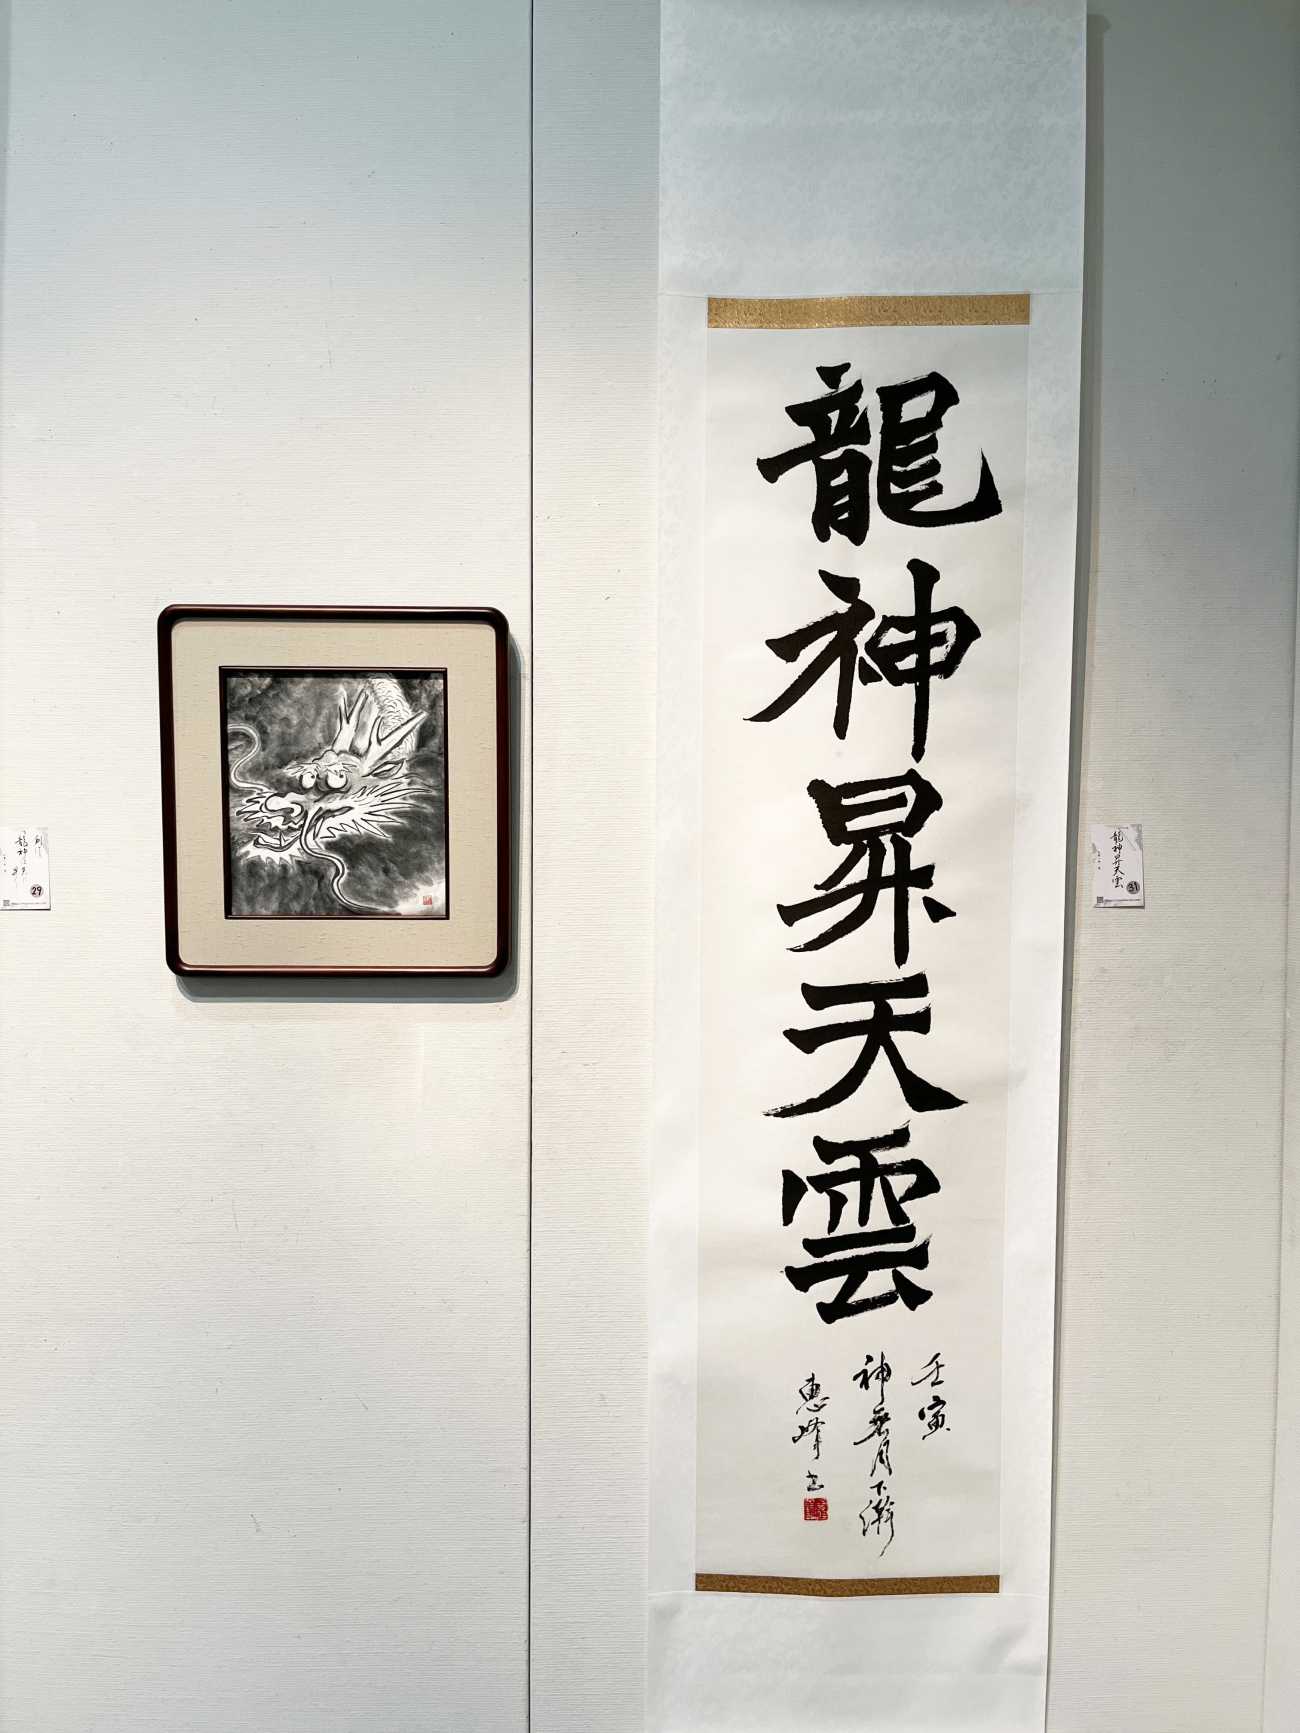 龍神昇天雲
壬寅
神無月下澣
惠峰書
龍神昇天雲
31
29